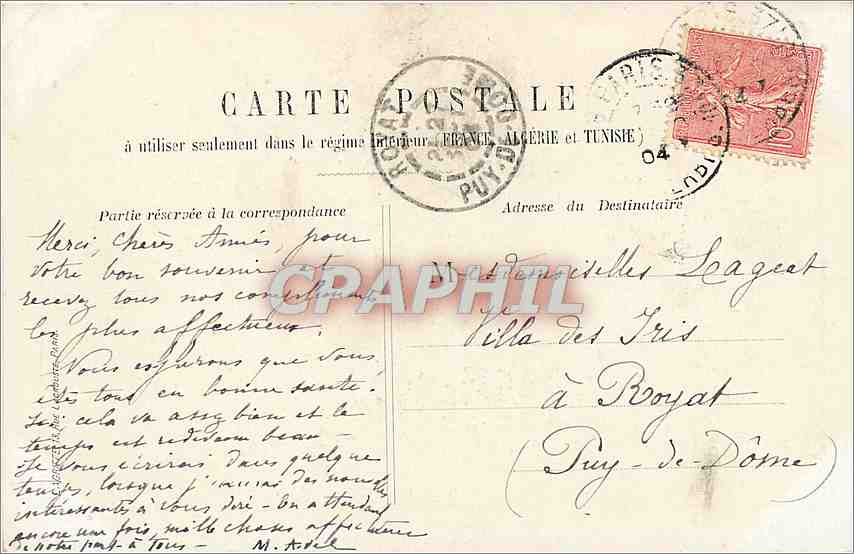 CARTE POSTALE
à utiliser seulement dans le régime intérieur (FRANCE, ALGÉRIE et TUNISIE)
Partie réservée à la correspondance
Merci, chères Amies, pour
votre bon souvenir et
recevez tous nos compliments
les plus affectueux.
Nous espérons que vous
êtes tous en bonne santé.
Ici cela va assez bien et le
temps est redevenu beau
Je vous écrirai dans quelque
temps, lorsque j'aurai des nouvelles
intéressantes à vous dire - En attendant
encore une fois, mille choses affectueuses
de notre part à tous - M.
Adresse du Destinataire
Mesdemoiselles Lageat
Villa des Iris
à Royat
(Puy-de-Dôme)
ROYAT
PUY-D
PARIS
04
10
CPAPHIL